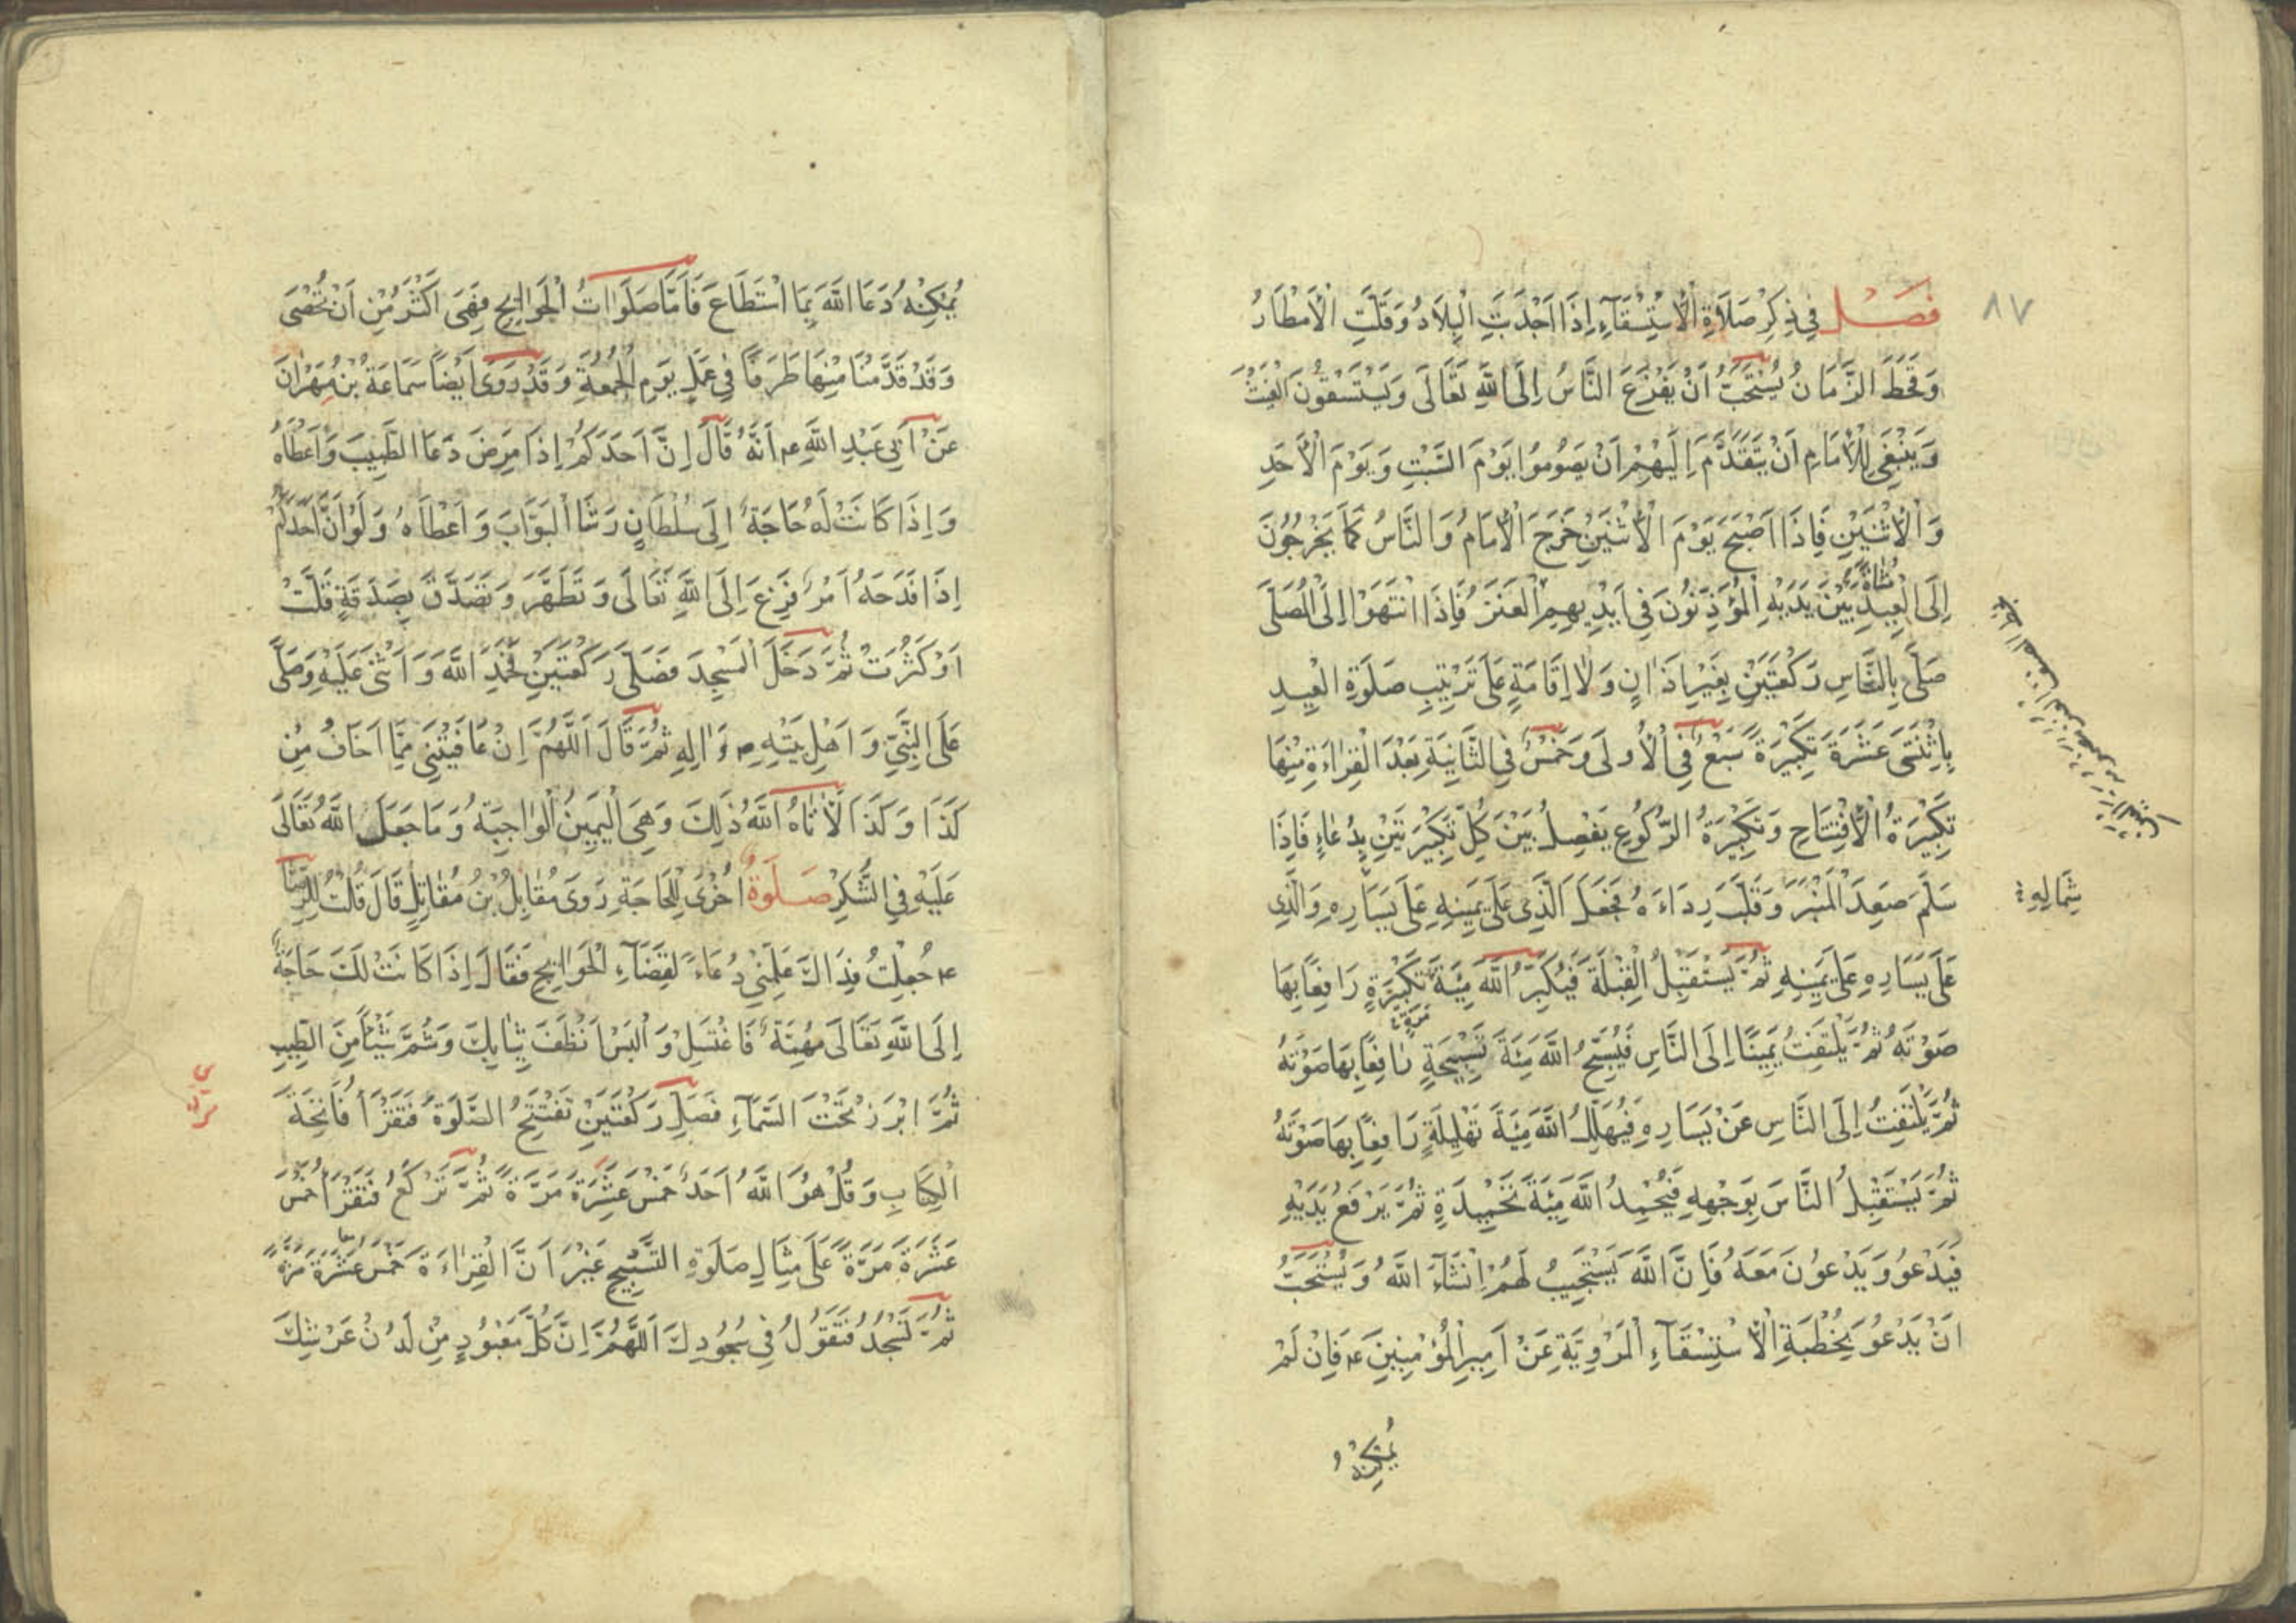 ۸۷
فَصْلٌ فِي ذِكْرِ صَلَاةِ الْاِسْتِسْقَآءِ اِذَا اَجْدَبَتِ الْبِلَادُ وَقَلَّتِ الْاَمْطَارُ
وَقَحَطَ الزَّمَانُ يُسْتَحَبُّ اَنْ يَفْزَعَ النَّاسُ اِلَى اللّٰهِ تَعَالَى وَيَسْتَسْقُونَ الْغَيْثَ
وَيَنْبَغِي لِلْاِمَامِ اَنْ يَتَقَدَّمَ اِلَيْهِمْ اَنْ يَصُومُوا يَوْمَ السَّبْتِ وَيَوْمَ الْاَحَدِ
وَالْاِثْنَيْنِ فَاِذَا اَصْبَحَ يَوْمَ الْاِثْنَيْنِ خَرَجَ الْاِمَامُ وَالنَّاسُ كَمَا يَخْرُجُونَ
اِلَى الْعِيدِ مُشَاةً بَيْنَ يَدَيْهِ الْمُؤَذِّنُونَ فِي اَيْدِيهِمُ الْعَنَزُ فَاِذَا انْتَهَوْا اِلَى الْمُصَلَّى
صَلَّى بِالنَّاسِ رَكْعَتَيْنِ بِغَيْرِ اَذَانٍ وَلَا اِقَامَةٍ عَلَى تَرْتِيبِ صَلَوةِ الْعِيدِ
بِاثْنَتَيْ عَشَرَةَ تَكْبِيرَةً سَبْعٌ فِي الْاُولَى وَخَمْسٌ فِي الثَّانِيَةِ بَعْدَ الْقِرَاءَةِ مِنْهَا
تَكْبِيرَةُ الْاِفْتِتَاحِ وَتَكْبِيرَةُ الرُّكُوعِ يَفْصِلُ بَيْنَ كُلِّ تَكْبِيرَتَيْنِ بِدُعَاءٍ فَاِذَا
سَلَّمَ صَعِدَ الْمِنْبَرَ وَقَلَّبَ رِدَاءَهُ فَجَعَلَ الَّذِي عَلَى يَمِينِهِ عَلَى يَسَارِهِ وَالَّذِي
شِمَالِهِ
عَلَى يَسَارِهِ عَلَى يَمِينِهِ ثُمَّ يَسْتَقْبِلُ الْقِبْلَةَ فَيُكَبِّرُ اللّٰهَ مِئَةَ تَكْبِيرَةٍ رَافِعًا بِهَا
صَوْتَهُ ثُمَّ يَلْتَفِتُ يَمِينًا اِلَى النَّاسِ فَيُسَبِّحُ اللّٰهَ مِئَةَ تَسْبِيحَةٍ رَافِعًا بِهَا صَوْتَهُ
ثُمَّ يَلْتَفِتُ اِلَى النَّاسِ عَنْ يَسَارِهِ فَيُهَلِّلُ اللّٰهَ مِئَةَ تَهْلِيلَةٍ رَافِعًا بِهَا صَوْتَهُ
ثُمَّ يَسْتَقْبِلُ النَّاسَ بِوَجْهِهِ فَيُحَمِّدُ اللّٰهَ مِئَةَ تَحْمِيدَةٍ ثُمَّ يَرْفَعُ يَدَيْهِ
فَيَدْعُو وَيَدْعُونَ مَعَهُ فَاِنَّ اللّٰهَ يَسْتَجِيبُ لَهُمْ اِنْشَآءَ اللّٰهُ وَيُسْتَحَبُّ
اَنْ يَدْعُوَ بِخُطْبَةِ الْاِسْتِسْقَآءِ الْمَرْوِيَّةِ عَنْ اَمِيرِ الْمُؤْمِنِينَ ع فَاِنْ لَمْ
يُمْكِنْهُ
يُمْكِنْهُ دَعَا اللّٰهَ بِمَا اسْتَطَاعَ فَاَمَّا صَلَوَاتُ الْحَوَائِجِ فَهِيَ اَكْثَرُ مِنْ اَنْ تُحْصَى
وَقَدْ قَدَّمْنَا مِنْهَا طَرَفًا فِي عَمَلِ يَوْمِ الْجُمُعَةِ وَقَدْ رَوَى اَيْضًا سَمَاعَةُ بْنُ مِهْرَانَ
عَنْ اَبِي عَبْدِ اللّٰهِ ع اَنَّهُ قَالَ اِنَّ اَحَدَكُمْ اِذَا مَرِضَ دَعَا الطَّبِيبَ وَاَعْطَاهُ
وَاِذَا كَانَتْ لَهُ حَاجَةٌ اِلَى سُلْطَانٍ رَشَا الْبَوَّابَ وَاَعْطَاهُ وَلَوْ اَنَّ اَحَدَكُمْ
اِذَا فَدَحَهُ اَمْرٌ فَزِعَ اِلَى اللّٰهِ تَعَالَى وَتَطَهَّرَ وَتَصَدَّقَ بِصَدَقَةٍ قَلَّتْ
اَوْ كَثُرَتْ ثُمَّ دَخَلَ الْمَسْجِدَ فَصَلَّى رَكْعَتَيْنِ فَحَمِدَ اللّٰهَ وَاَثْنَى عَلَيْهِ وَصَلَّى
عَلَى النَّبِيِّ وَاَهْلِ بَيْتِهِ ص وَاٰلِهِ ثُمَّ قَالَ اَللّٰهُمَّ اِنْ عَافَيْتَنِي مِمَّا اَخَافُ مِنْ
كَذَا وَكَذَا لَاٰتَاهُ اللّٰهُ ذٰلِكَ وَهِيَ الْيَمِينُ الْوَاجِبَةُ وَمَا جَعَلَ اللّٰهُ تَعَالَى
عَلَيْهِ فِي الشُّكْرِ صَلَوةٌ اُخْرَى لِلْحَاجَةِ رَوَى مُقَاتِلُ بْنُ مُقَاتِلٍ قَالَ قُلْتُ لِلرِّضَا
ع جُعِلْتُ فِدَاكَ عَلِّمْنِي دُعَاءً لِقَضَآءِ الْحَوَائِجِ فَقَالَ اِذَا كَانَتْ لَكَ حَاجَةٌ
اِلَى اللّٰهِ تَعَالَى مُهِمَّةٌ فَاغْتَسِلْ وَالْبَسْ اَنْظَفَ ثِيَابِكَ وَشُمَّ شَيْئًا مِنَ الطِّيبِ
ثُمَّ ابْرُزْ تَحْتَ السَّمَآءِ فَصَلِّ رَكْعَتَيْنِ تَفْتَتِحُ الصَّلَوةَ فَتَقْرَأُ فَاتِحَةَ
الْكِتَابِ وَقُلْ هُوَ اللّٰهُ اَحَدٌ خَمْسَ عَشْرَةَ مَرَّةً ثُمَّ تَرْكَعُ فَتَقْرَأُ خَمْسَ
عَشْرَةَ مَرَّةً عَلَى مِثَالِ صَلَوةِ التَّسْبِيحِ غَيْرَ اَنَّ الْقِرَاءَةَ خَمْسَ عَشْرَةَ مَرَّةً
ثُمَّ تَسْجُدُ فَتَقُولُ فِي سُجُودِكَ اَللّٰهُمَّ اِنَّ كُلَّ مَعْبُودٍ مِنْ لَدُنْ عَرْشِكَ